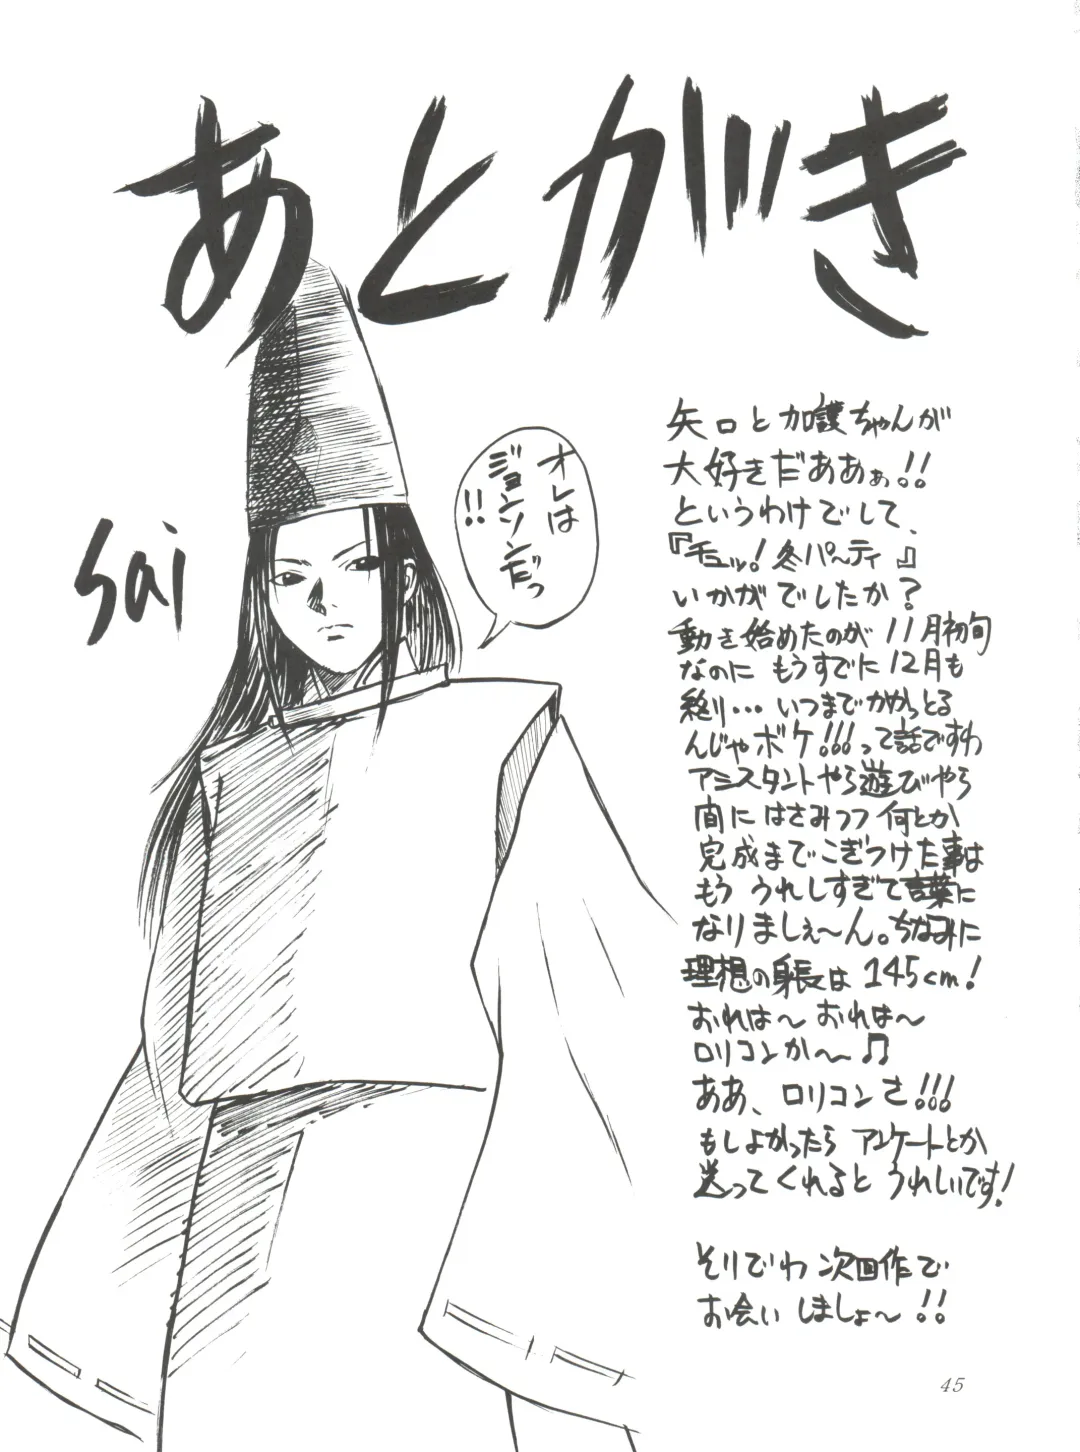 あとがき
sai
オレは
ジョンソンだっ
!!
矢口と加護ちゃんが
大好きだああぁ!!
というわけでして、
『チュッ!冬パ〜ティ』
いかがでしたか?
動き始めたのが11月初旬
なのにもうすでに12月も
終り…いつまでかかっとる
んじゃボケ!!!って話ですわ
アシスタントやら遊びやら
間にはさみつつ何とか
完成までこぎつけた事は
もううれしすぎて言葉に
なりましぇ〜ん。ちなみに
理想の身長は145cm!
おれは〜おれは〜
ロリコンか〜♫
ああ、ロリコンさ!!!
もしよかったらアンケートとか
送ってくれるとうれしいです!
そりでわ次回作で
お会いしましょ〜!!
45